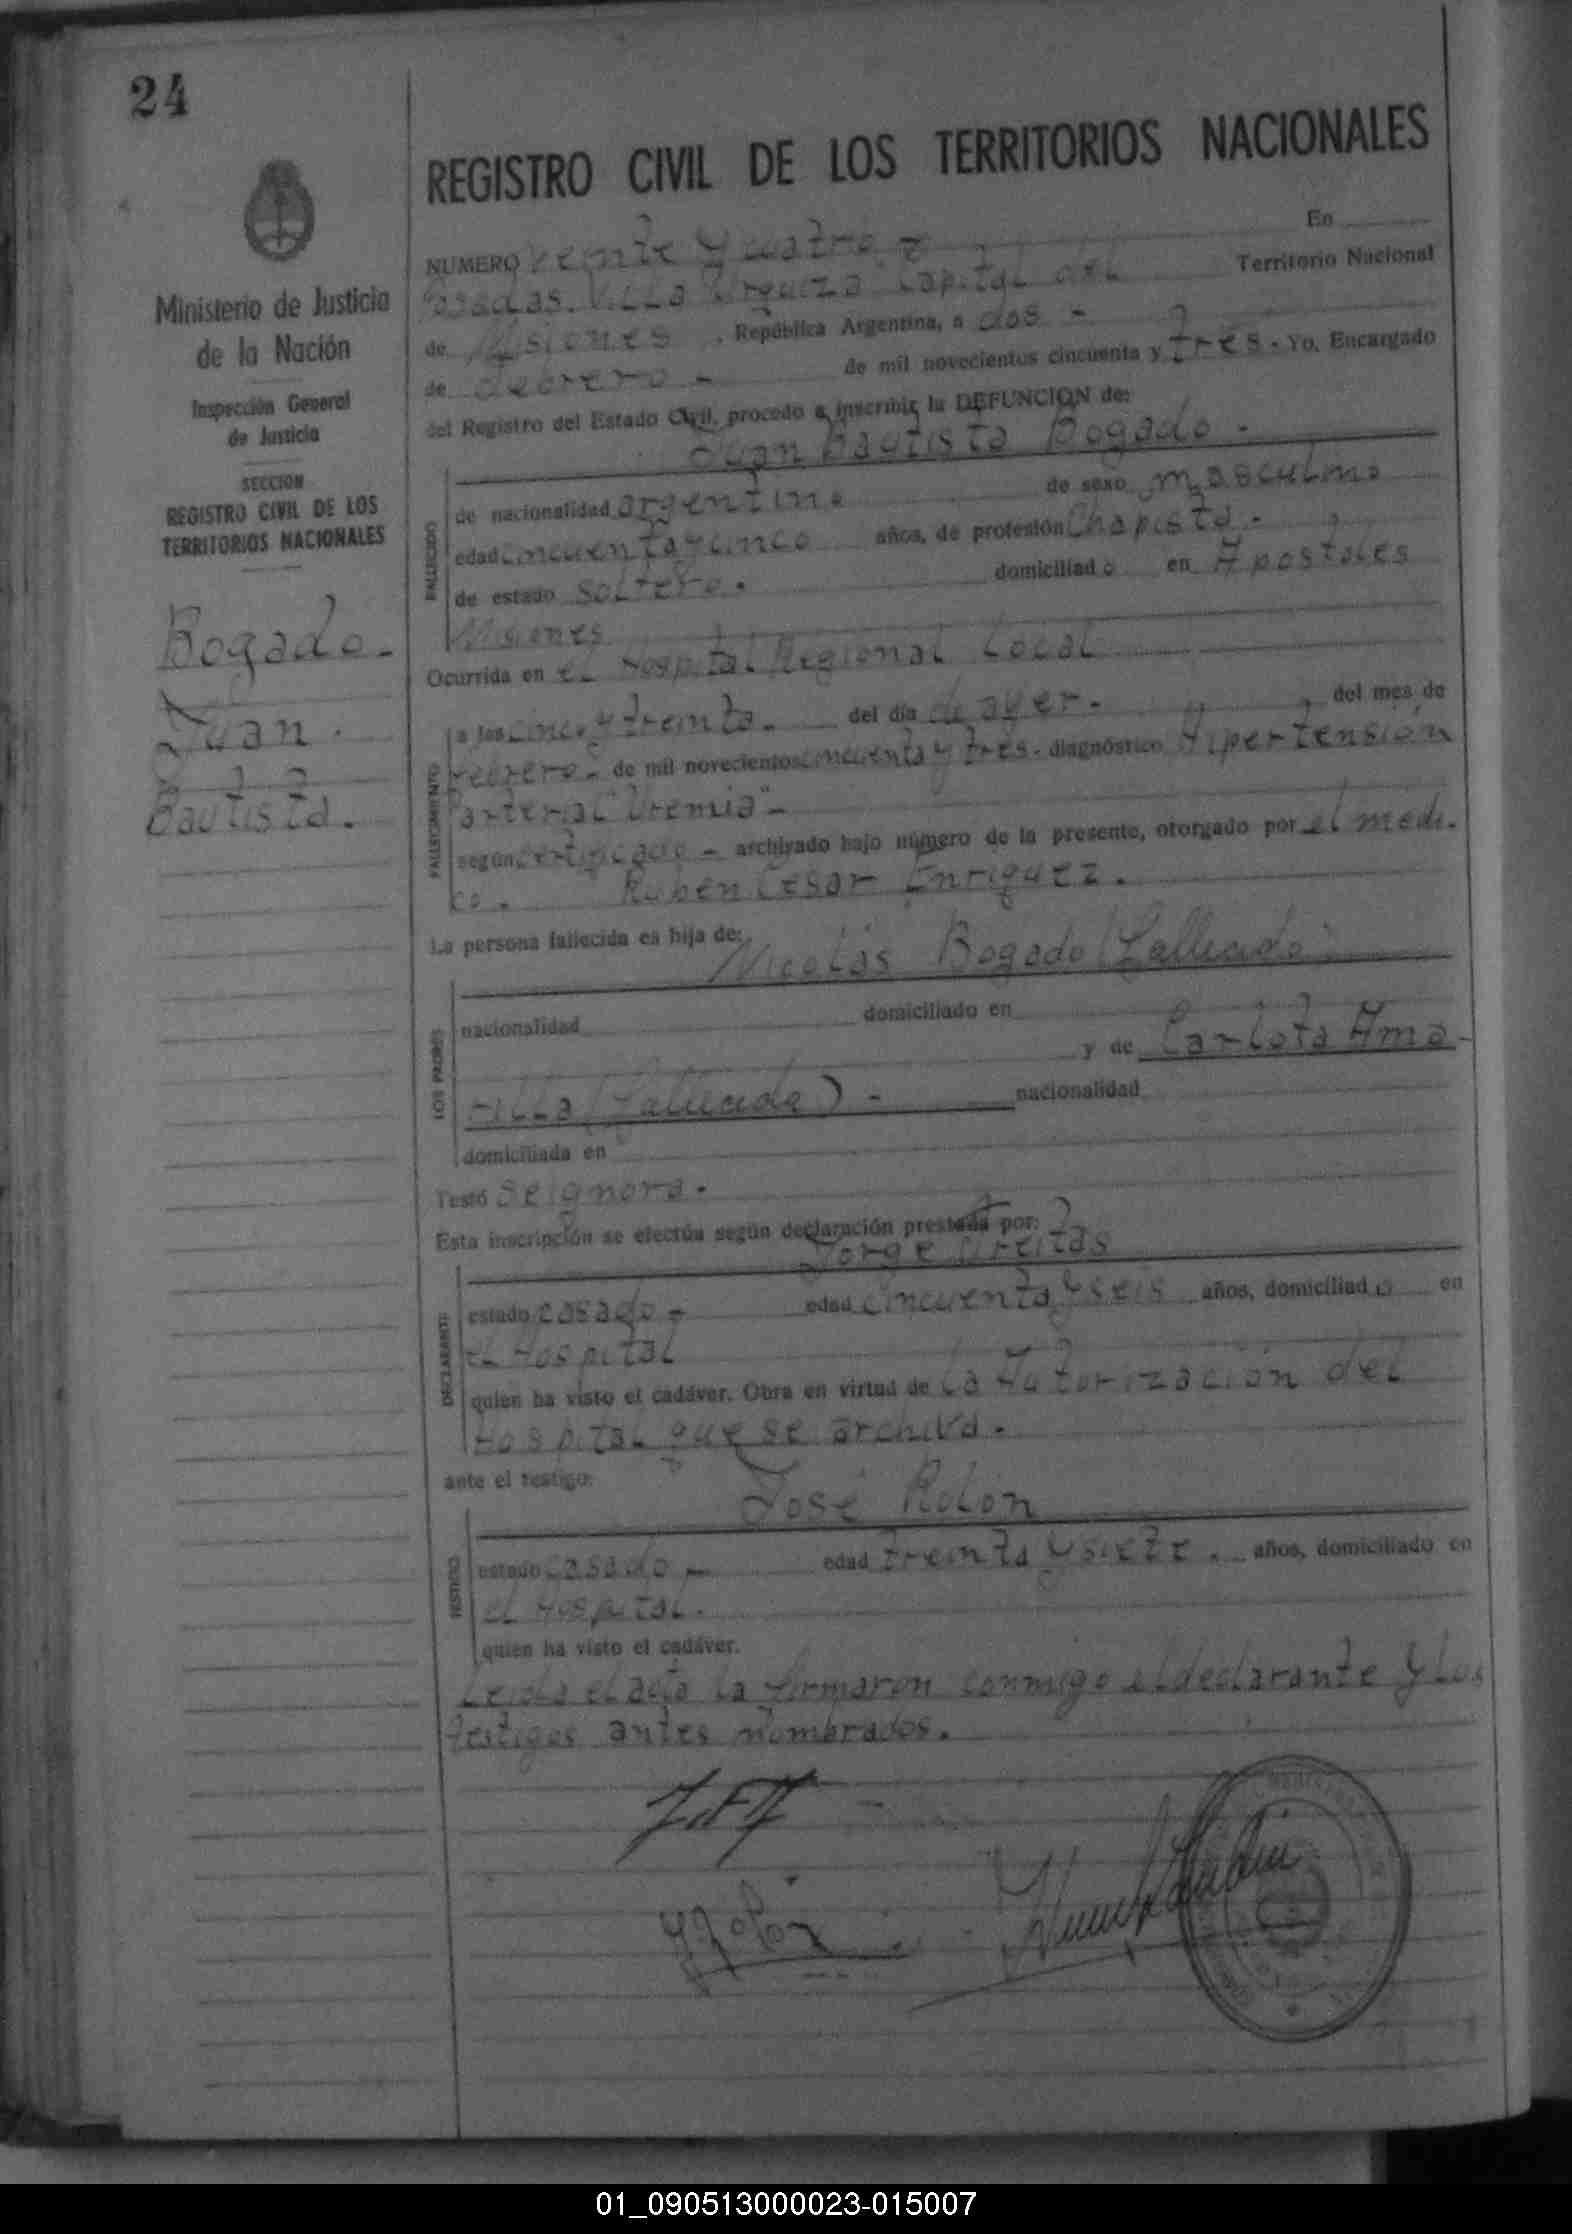 24
REGISTRO CIVIL DE LOS TERRITORIOS NACIONALES
Ministerio de Justicia
de la Nación
Inspección General
de Justicia
SECCION
REGISTRO CIVIL DE LOS
TERRITORIOS NACIONALES
Bogado.
Juan.
Bautista.
NUMERO Veinte y cuatro En
Posadas. Villa Urquiza Capital del Territorio Nacional
de Misiones, República Argentina, a dos -
de febrero - de mil novecientos cincuenta y tres. Yo, Encargado
del Registro del Estado Civil, procedo a inscribir la DEFUNCION de:
Juan Bautista Bogado.
FALLECIDO
de nacionalidad argentino de sexo masculino
edad cincuenta y cinco años, de profesión Chapista.
de estado soltero. domiciliado en Apostoles
Misiones
Ocurrida en el Hospital Regional Local
FALLECIMIENTO
a las cinco y treinta. del día de ayer. del mes de
febrero. de mil novecientos cincuenta y tres. diagnóstico Hipertensión
arterial "Uremia" -
según certificado - archivado bajo número de la presente, otorgado por el medi-
co. Ruben Cesar Enriquez.
La persona fallecida es hija de:
Nicolás Bogado (fallecido)
LOS PADRES
nacionalidad domiciliado en
y de Carlota Ama-
rilla (fallecida) - nacionalidad
domiciliada en
Testó se ignora.
Esta inscripción se efectúa según declaración prestada por:
Jorge Freitas
DECLARANTE
estado casado - edad cincuenta y seis años, domiciliado en
el Hospital
quien ha visto el cadáver. Obra en virtud de la Autorización del
Hospital que se archiva.
ante el testigo:
José Rolón
TESTIGO
estado casado - edad treinta y siete. años, domiciliado en
el Hospital.
quien ha visto el cadáver.
Leida el acta la firmaron conmigo el declarante y los
testigos antes nombrados.
01_090513000023-015007